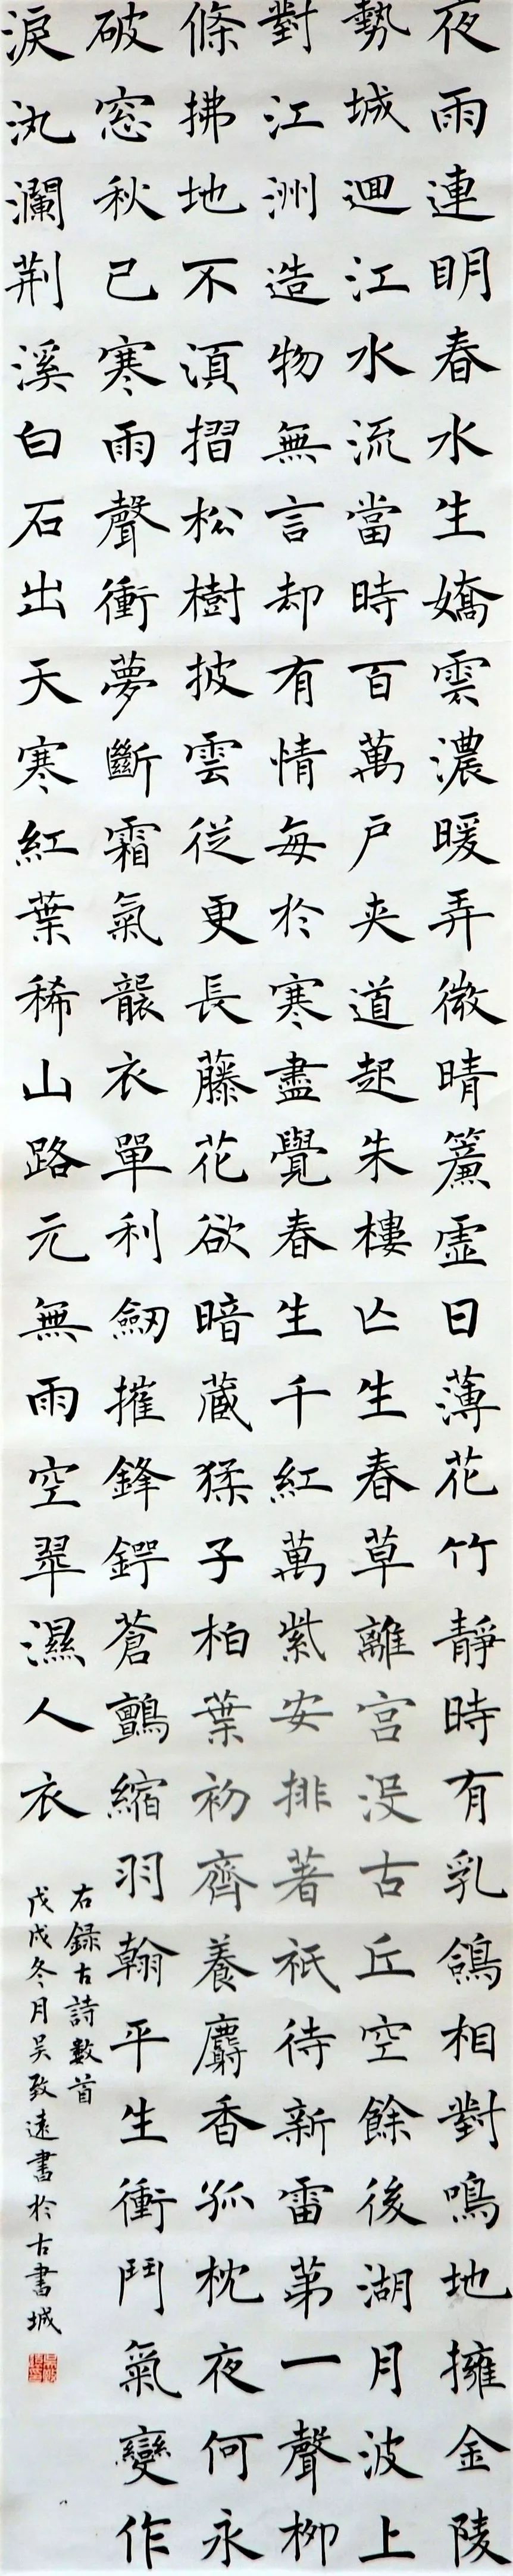 夜雨連明春水生嬌雲濃暖弄微晴簾虛日薄花竹靜時有乳鴿相對鳴地擁金陵
勢城迴江水流當時百萬戶夾道起朱樓亡生春草離宮沒古丘空餘後湖月波上
對江洲造物無言却有情每於寒盡覺春生千紅萬紫安排著祇待新雷第一聲柳
條拂地不須摺松樹披雲從更長藤花欲暗藏猱子柏葉初齊養麝香孤枕夜何永
破窓秋已寒雨聲衝夢斷霜氣襲衣單利劒摧鋒鍔蒼鸇縮羽翰平生衝鬥氣變作
淚汍瀾荆溪白石出天寒紅葉稀山路元無雨空翠濕人衣
右録古詩數首
戊戌冬月吴致遠書於古書城